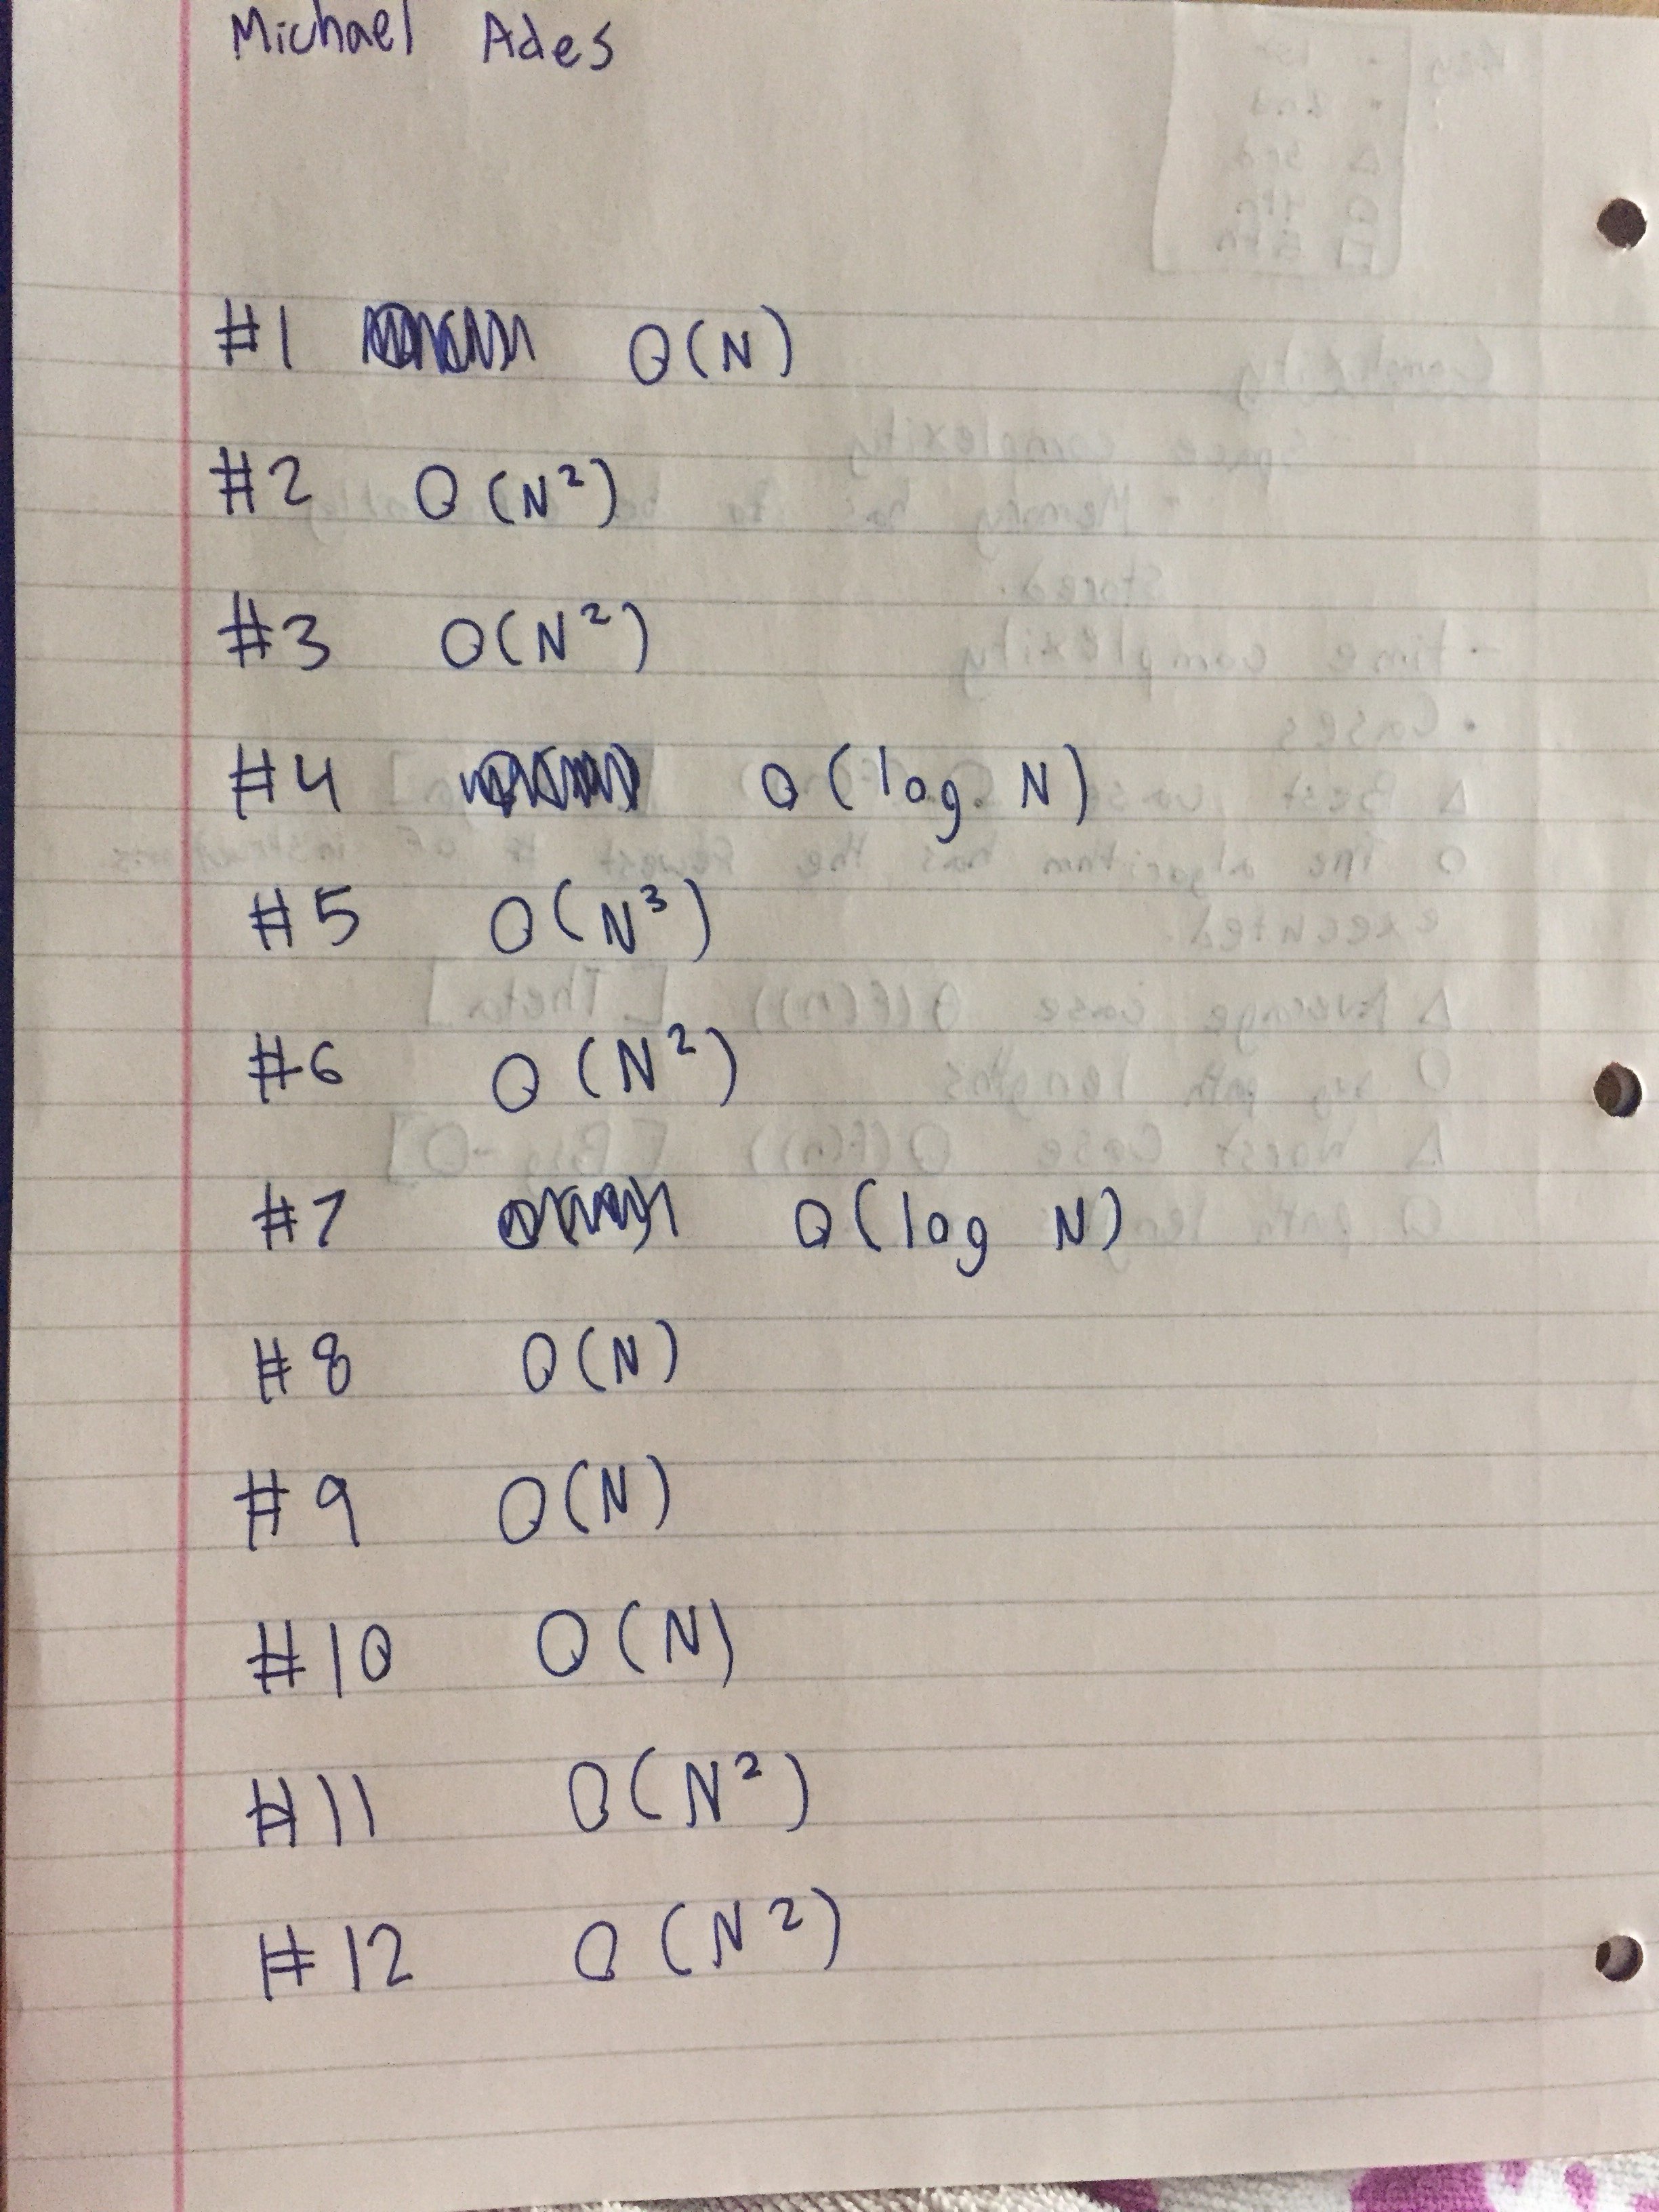 Michael Ades
#1 O(N)
#2 O(N²)
#3 O(N²)
#4 O(log N)
#5 O(N³)
#6 O(N²)
#7 O(log N)
#8 O(N)
#9 O(N)
#10 O(N)
#11 O(N²)
#12 O(N²)